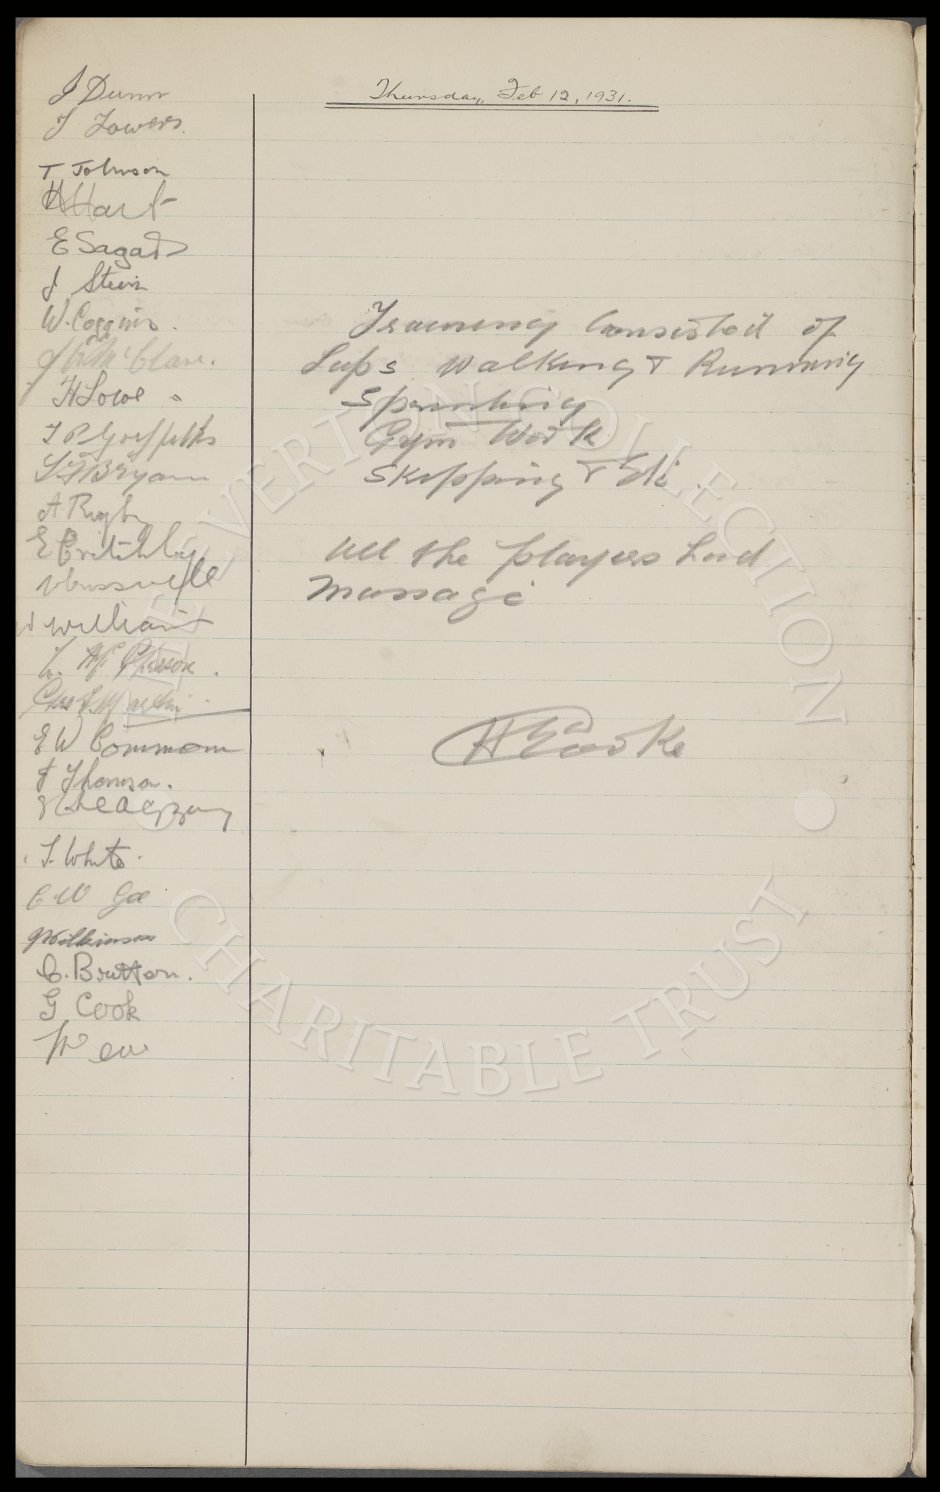 Thursday, Feb 12, 1931.
J Dunn
T Towers.
T Johnson
H Hart
E Sagar
J Stein
W. Coggins.
J McClare.
H Lowe
T P Griffiths
A Rigby
E Critchley
Williams
E W Common
J Thomson.
T. White.
C W Gee
J Wilkinson
C. Britton.
G Cook
Training Consisted of
Laps Walking & Running
Sprinting
Gym Work
Skipping & Etc.
All the players had
Massage
H E Cooke
EVERTON COLLECTION
CHARITABLE TRUST